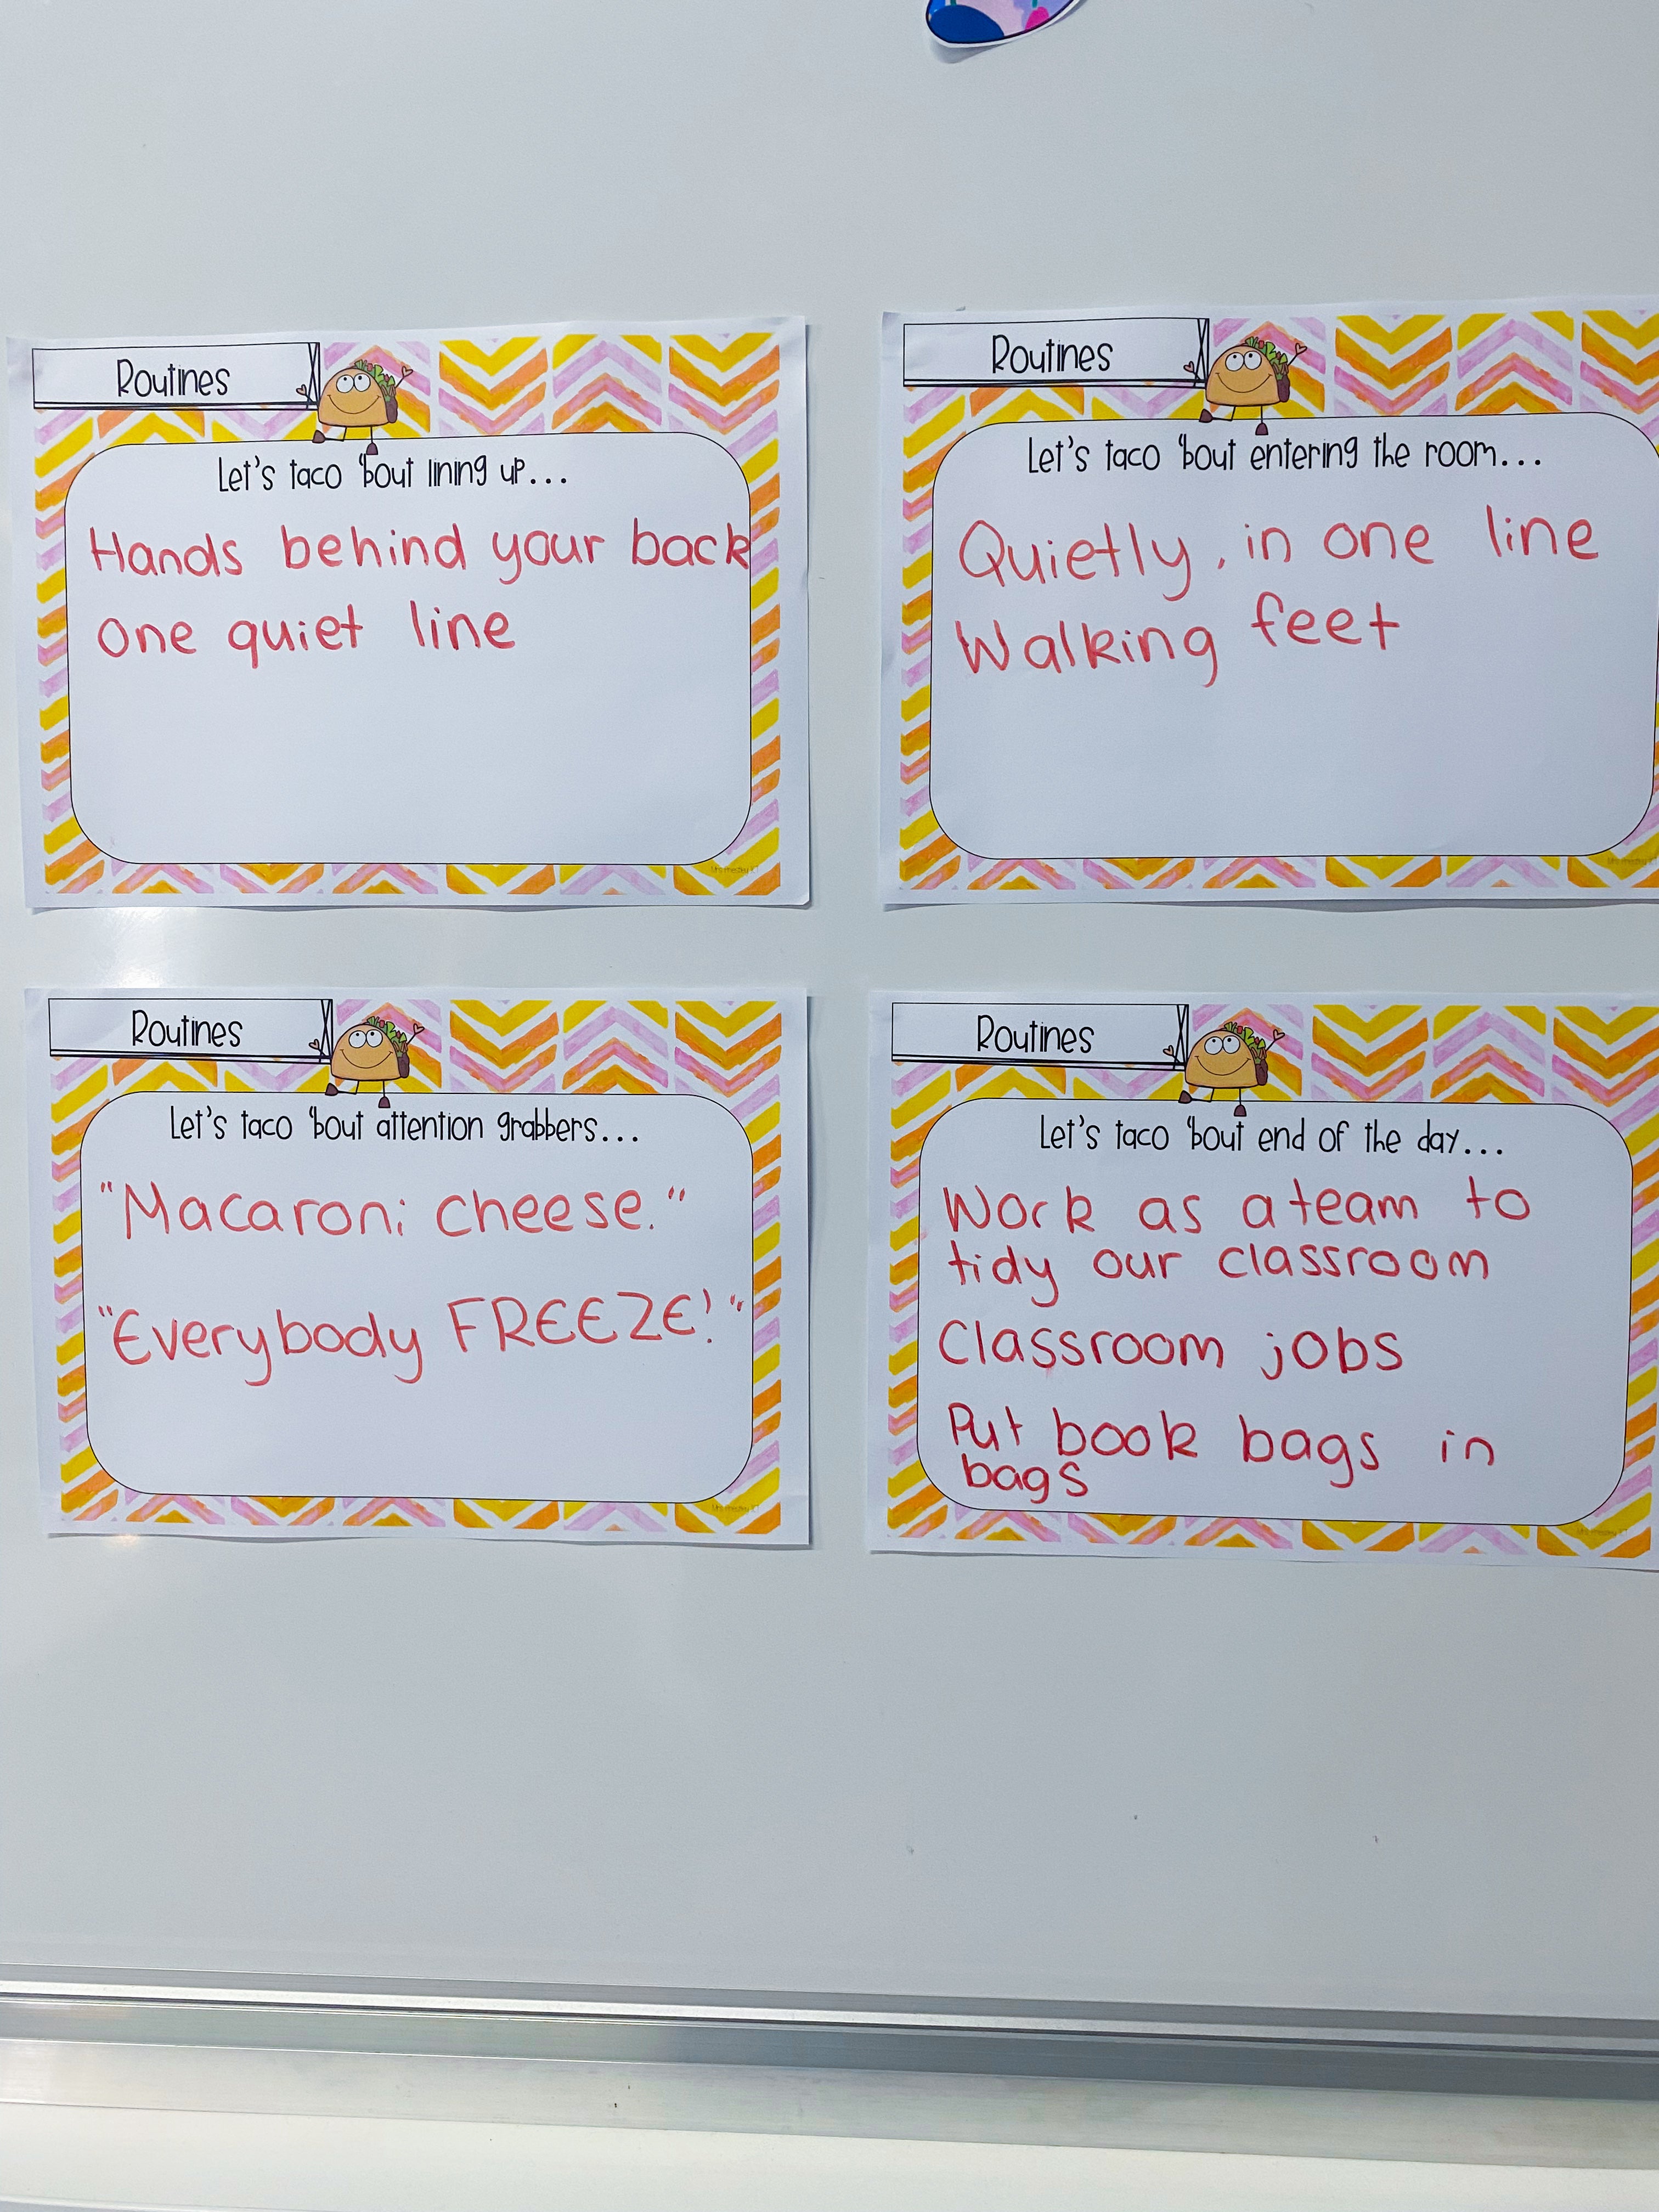 Routines
Let's taco 'bout lining up...
Hands behind your back
one quiet line
Routines
Let's taco 'bout entering the room...
Quietly, in one line
Walking feet
Routines
Let's taco 'bout attention grabbers...
"Macaroni cheese."
"Everybody FREEZE!"
Routines
Let's taco 'bout end of the day...
Work as a team to
tidy our classroom
Classroom jobs
Put book bags in
bags